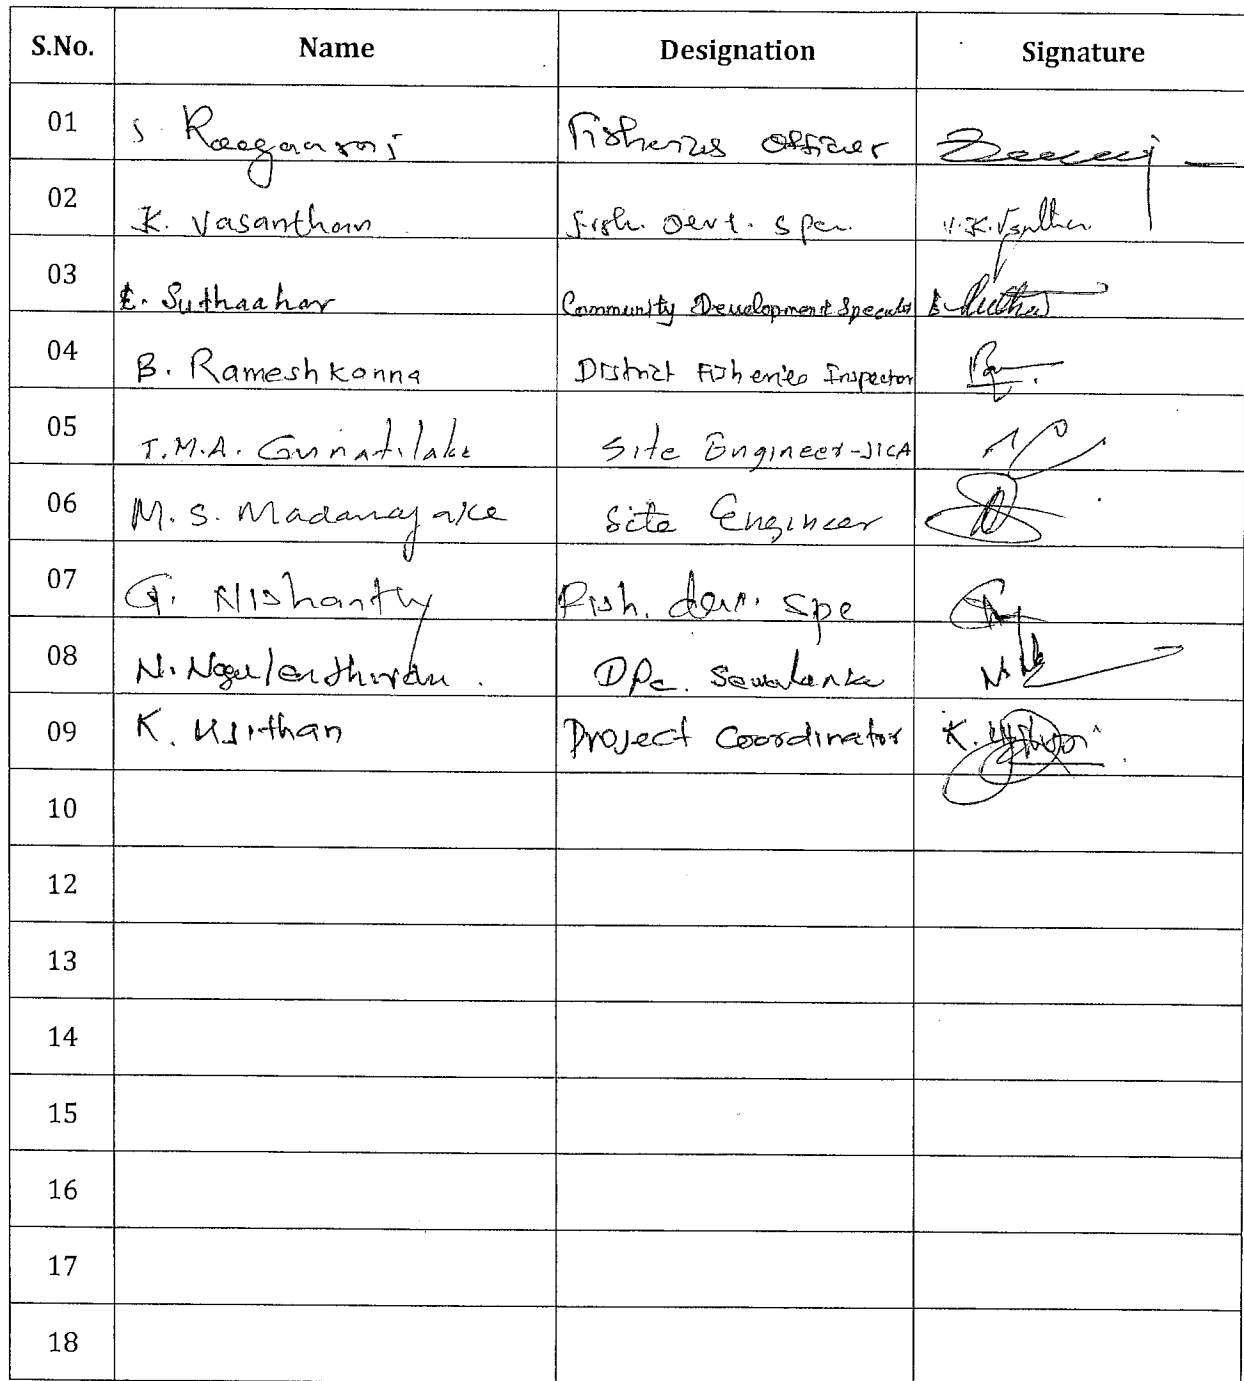 S.No. Name Designation Signature
01 S. Fisheries Officer
02 K. Vasanthan Fish. Devt. Spe.
03 E. Suthaahar Community Development Specialist
04 B. Rameshkanna District Fisheries Inspector
05 T.M.A. Gunatilake Site Engineer-JICA
06 M. S. Madanayake Site Engineer
07 G. Nishanthy Fish. dev. spe
08 N. DPC. Sewalanka
09 K. Usithan Project Coordinator K.
10
12
13
14
15
16
17
18